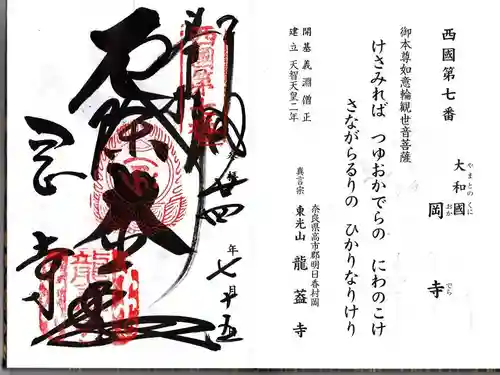 西國第七番
大和國 岡寺
やまとのくに おかでら
御本尊如意輪観世音菩薩
けさみれば つゆおかでらの にわのこけ
さながらるりの ひかりなりけり
開基 義淵僧正
建立 天智天皇二年
奈良県高市郡明日香村岡
真言宗 東光山 龍蓋寺
年七月十五
岡寺